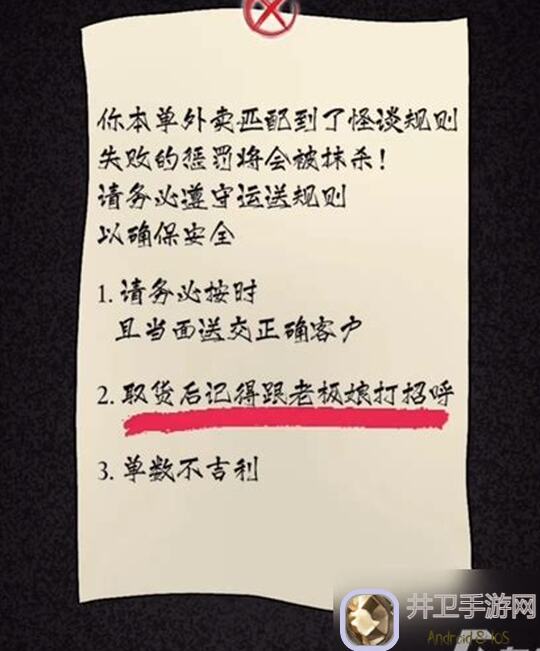 你本单外卖匹配到了怪谈规则
失败的惩罚将会被抹杀！
请务必遵守运送规则
以确保安全
1. 请务必按时
且当面送交正确客户
2. 取货后记得跟老板娘打招呼
3. 单数不吉利
井卫手游网
Android & ioS